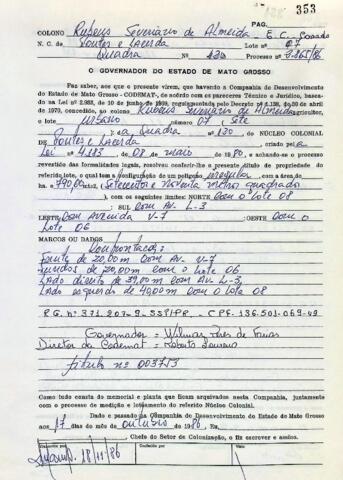 353
PAG.
COLONO Rubens Severiano de Almeida - E.C. Casado
N. C. de Pontes e Lacerda Lote nº 07
Quadra nº 130 Processo nº 3.365/86
O GOVERNADOR DO ESTADO DE MATO GROSSO
Faz saber, aos que o presente virem, que havendo a Companhia de Desenvolvimento
do Estado de Mato Grosso - CODEMAT, de acôrdo com os pareceres Técnico e Jurídico, basea-
da na Lei nº 2.988, de 10 de junho de 1969, regulamentada pelo Decreto nº 1.138, de 30 de abril
de 1970, concedido, ao colono Rubens Severiano de Almeida agricultor,
o lote urbano número 07 / Sete
/ da Quadra nº 130 DO NÚCLEO COLONIAL
de Pontes e Lacerda criado pela
Lei nº 4.183 de 08 de maio de 1980, e achando-se o processo
revestido das formalidades legais, resolveu conferir-lhe o presente título de propriedade do
referido lote, o qual tem a configuração de um polígono irregular, com a área de
ha 790,00 mts2, Setecentos e Noventa metros quadrado
), com os seguintes limites: NORTE Com o Lote 08
; SUL Com AV- L-3
LESTE Com Avenida V-7 ; OESTE Com o
Lote 06
MARCOS OU DADOS
Confrontações:
Frente de 20,00m Com AV- V-7
Fundos de 20,00m com o Lote 06
Lado direito de 39,00m com AV- L-3,
Lado esquerdo de 40,00m Com o Lote 08
R.G. nº 371.207-9-SSP/PR. - CPF. 136.501.069-49
Governador = Wilmar Peres de Farias
Diretor da Codemat = Roberto
Titulo nº 003753
Como tudo consta do memorial e planta que ficam arquivados nesta Companhia, juntamente
com o processo de medição e loteamento do referido Núcleo Colonial.
Dado e passado na Companhia de Desenvolvimento do Estado de Mato Grosso
aos 17 dias do mês de outubro de 1986, Eu,
, Chefe do Setor de Colonização, o fiz escrever e assino.
Conferido
Visto
18/11/86